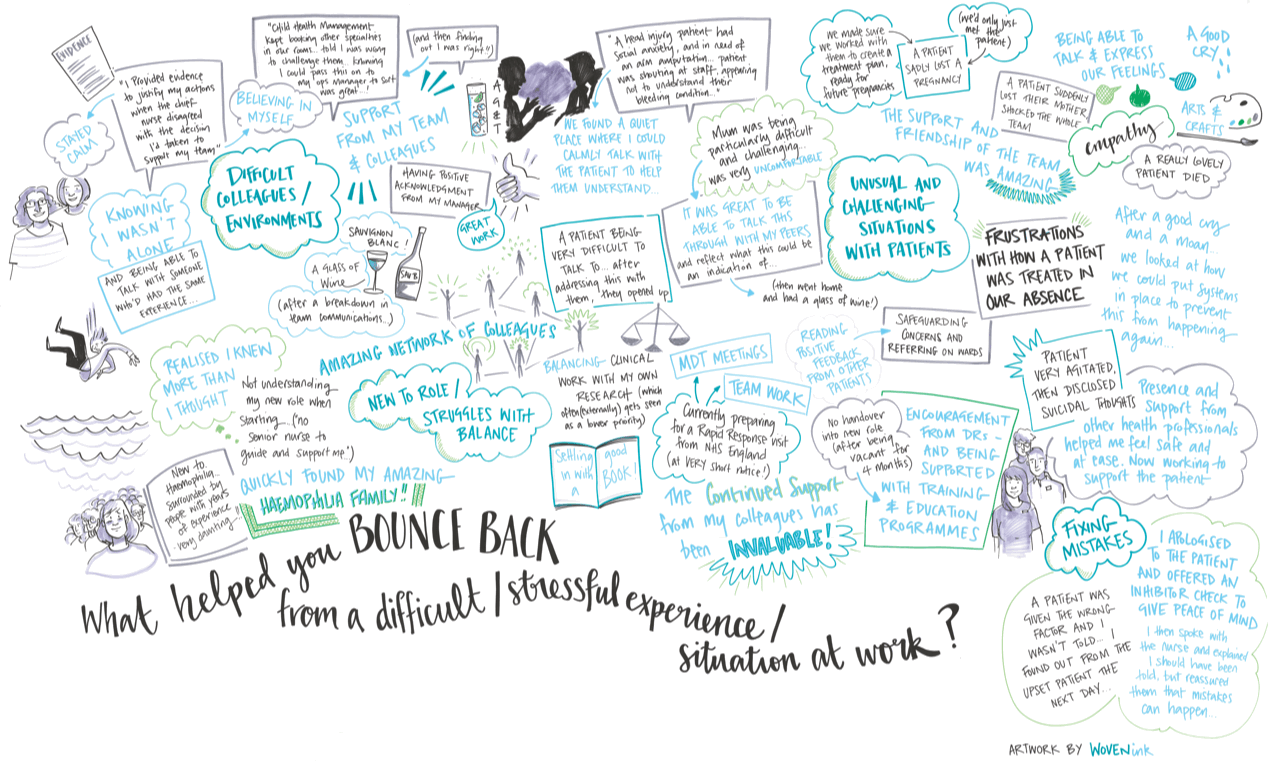 EVIDENCE
"I Provided evidence
to justify my actions
when the chief
nurse disagreed
with the decision
I'd taken to
support my team"
STAYED
CALM
"Child Health Management
kept booking other specialities
in our rooms... told I was wrong
to challenge them. Knowing
I could pass this on to
my ops manager to sort
was great..."
(and then finding
out I was right!")
BELIEVING IN
MYSELF
SUPPORT
FROM MY TEAM
& COLLEAGUES
DIFFICULT
COLLEAGUES /
ENVIRONMENTS
KNOWING
I WASN'T
ALONE
AND BEING ABLE TO
TALK WITH SOMEONE
WHO'D HAD THE SAME
EXPERIENCE...
A
G
&
T
HAVING POSITIVE
ACKNOWLEDGMENT
FROM MY MANAGER
GREAT
WORK
SAUVIGNON
BLANC!
SAV B.
A GLASS OF
Wine
(after a breakdown in
team communications...)
"A head injury patient had
social anxiety, and in need of
an arm amputation... patient
was shouting at staff, appearing
not to understand their
bleeding condition..."
WE FOUND A QUIET
PLACE WHERE I COULD
CALMLY TALK WITH
THE PATIENT TO HELP
THEM UNDERSTAND...
A PATIENT BEING
VERY DIFFICULT TO
TALK TO... after
addressing this with
them, they opened up
Mum was being
particularly difficult
and challenging...
was very UNCOMFORTABLE
IT WAS GREAT TO BE
ABLE TO TALK THIS
THROUGH WITH MY PEERS
and reflect what this could be
an indication of...
(then went home
and had a glass of wine!)
UNUSUAL AND
CHALLENGING
SITUATIONS
WITH PATIENTS
we made sure
we worked with
them to create a
treatment plan,
ready for
future pregnancies
A PATIENT
SADLY LOST A
PREGNANCY
(we'd only just
met the
patient)
THE SUPPORT AND
FRIENDSHIP OF THE TEAM
WAS AMAZING
A PATIENT SUDDENLY
LOST THEIR MOTHER,
SHOCKED THE WHOLE
TEAM
BEING ABLE TO
TALK & EXPRESS
OUR FEELINGS
A GOOD
CRY
ARTS &
CRAFTS
empathy
A REALLY LOVELY
PATIENT DIED
FRUSTRATIONS
WITH HOW A PATIENT
WAS TREATED IN
OUR ABSENCE
After a good cry
and a moan...
we looked at how
we could put systems
in place to prevent
this from happening
again...
SAFEGUARDING
CONCERNS AND
REFERRING ON WARDS
AMAZING NETWORK OF COLLEAGUES
REALISED I KNEW
MORE THAN
I THOUGHT
Not understanding
my new role when
starting... ("no
senior nurse to
guide and support me.")
NEW TO ROLE /
STRUGGLES WITH
BALANCE
BALANCING CLINICAL
WORK WITH MY OWN
RESEARCH (which
often (externally) gets seen
as a lower priority)
MDT MEETINGS
TEAM WORK
READING
POSITIVE
FEEDBACK
FROM OTHER
PATIENTS
Currently preparing
for a Rapid Response visit
from NHS England
(at VERY short notice!)
No handover
into new role
(after being
vacant for
4 months)
ENCOURAGEMENT
FROM DRs -
AND BEING
SUPPORTED
WITH TRAINING
& EDUCATION
PROGRAMMES
PATIENT
VERY AGITATED,
THEN DISCLOSED
SUICIDAL THOUGHTS
Presence and
Support from
other health professionals
helped me feel safe and
at ease. Now working to
support the patient
New to
Haemophilia...
surrounded by
people with years
of experience
- very daunting -
QUICKLY FOUND MY AMAZING
HAEMOPHILIA FAMILY!!
Settling
in with
a
good
BOOK!
The Continued Support
from my colleagues has
been INVALUABLE!
FIXING
MISTAKES
A PATIENT WAS
GIVEN THE WRONG
FACTOR AND I
WASN'T TOLD... I
FOUND OUT FROM THE
UPSET PATIENT THE
NEXT DAY...
I APOLOGISED
TO THE PATIENT
AND OFFERED AN
INHIBITOR CHECK TO
GIVE PEACE OF MIND
I then spoke with
the nurse and explained
I should have been
told, but reassured
them that mistakes
can happen...
What helped you BOUNCE BACK
from a difficult / stressful experience /
situation at work?
ARTWORK BY WOVENink